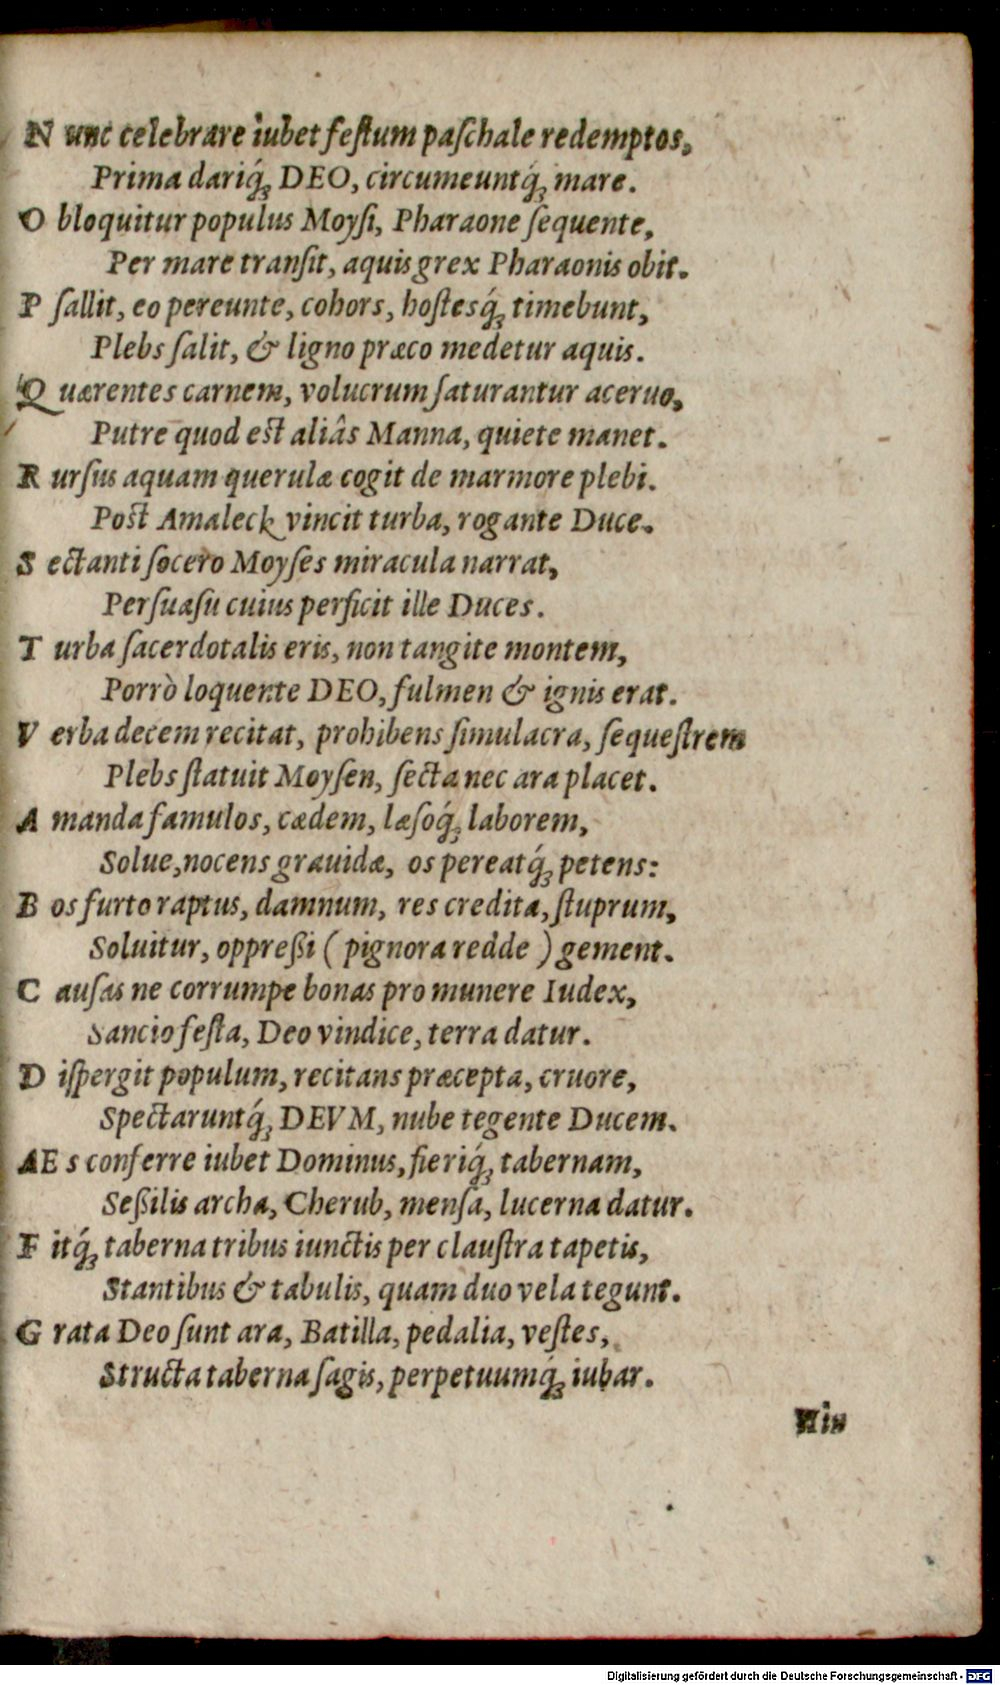 N unc celebrare iubet feſtum paſchale redemptos,
Prima dariq́ꝫ DEO, circumeuntq́ꝫ mare.
O bloquitur populus Moyſi, Pharaone ſequente,
Per mare tranſit, aquis grex Pharaonis obit.
P ſallit, eo pereunte, cohors, hoſtesq́ꝫ timebunt,
Plebs ſalit, & ligno præco medetur aquis.
Q uærentes carnem, volucrum ſaturantur aceruo,
Putre quod eſt aliâs Manna, quiete manet.
R urſus aquam querulæ cogit de marmore plebi.
Poſt Amaleck vincit turba, rogante Duce.
S ectanti ſocero Moyſes miracula narrat,
Perſuaſu cuius perficit ille Duces.
T urba ſacerdotalis eris, non tangite montem,
Porrò loquente DEO, fulmen & ignis erat.
V erba decem recitat, prohibens ſimulacra, ſequeſtrem
Plebs ſtatuit Moyſen, ſecta nec ara placet.
A manda famulos, cædem, læſoq́ꝫ laborem,
Solue, nocens grauidæ, os pereatq́ꝫ petens:
B os furto raptus, damnum, res credita, ſtuprum,
Soluitur, oppreßi ( pignora redde ) gement.
C auſas ne corrumpe bonas pro munere Iudex,
Sancio feſta, Deo vindice, terra datur.
D iſpergit populum, recitans præcepta, cruore,
Spectaruntq́ꝫ DEVM, nube tegente Ducem.
AE s conferre iubet Dominus, fieriq́ꝫ tabernam,
Seßilis archa, Cherub, menſa, lucerna datur.
F itq́ꝫ taberna tribus iunctis per clauſtra tapetis,
Stantibus & tabulis, quam duo vela tegunt.
G rata Deo ſunt ara, Batilla, pedalia, veſtes,
Structa taberna ſagis, perpetuumq́ꝫ iubar.
Digitalisierung gefördert durch die Deutsche Forschungsgemeinschaft - DFG